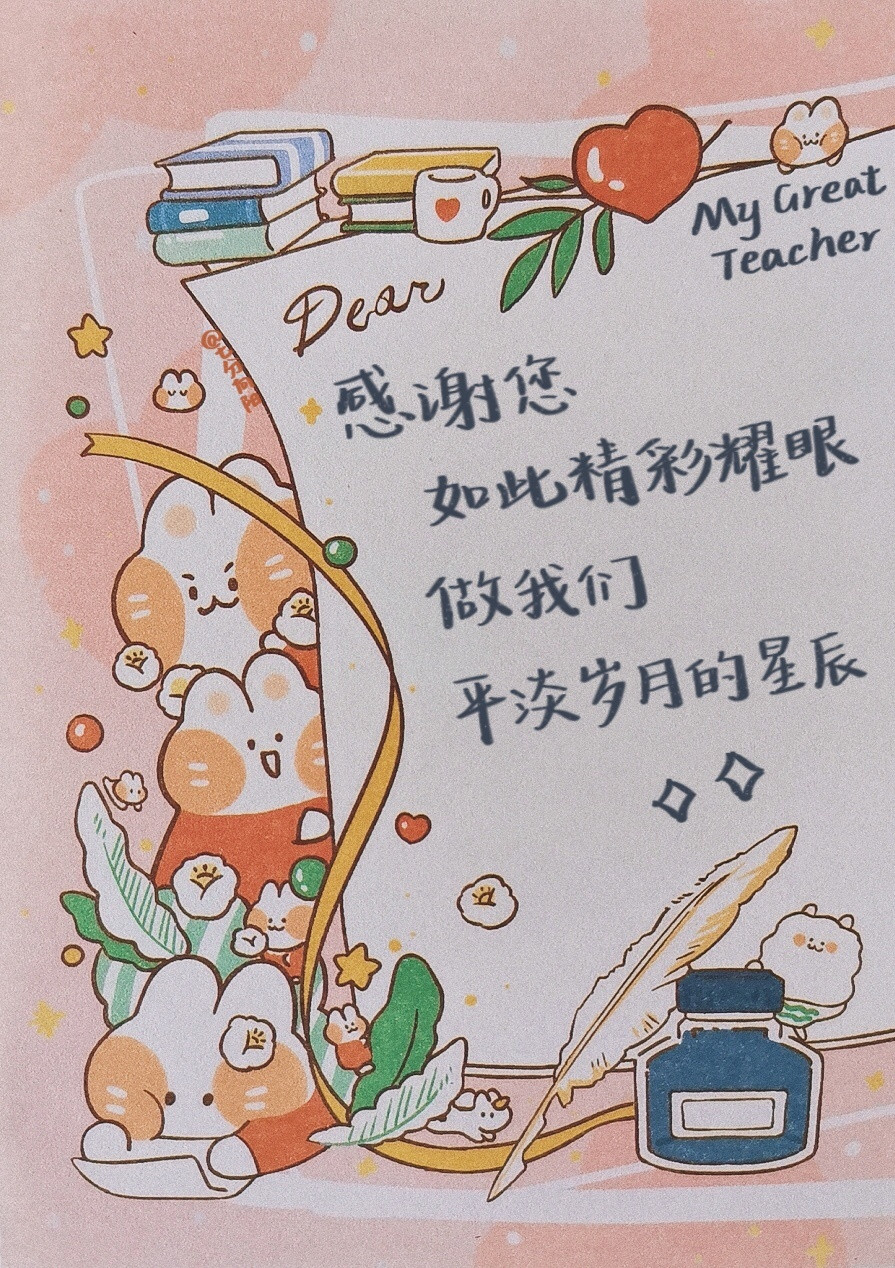 My Great
Teacher
Dear
@七分向阳
感谢您
如此精彩耀眼
做我们
平淡岁月的星辰